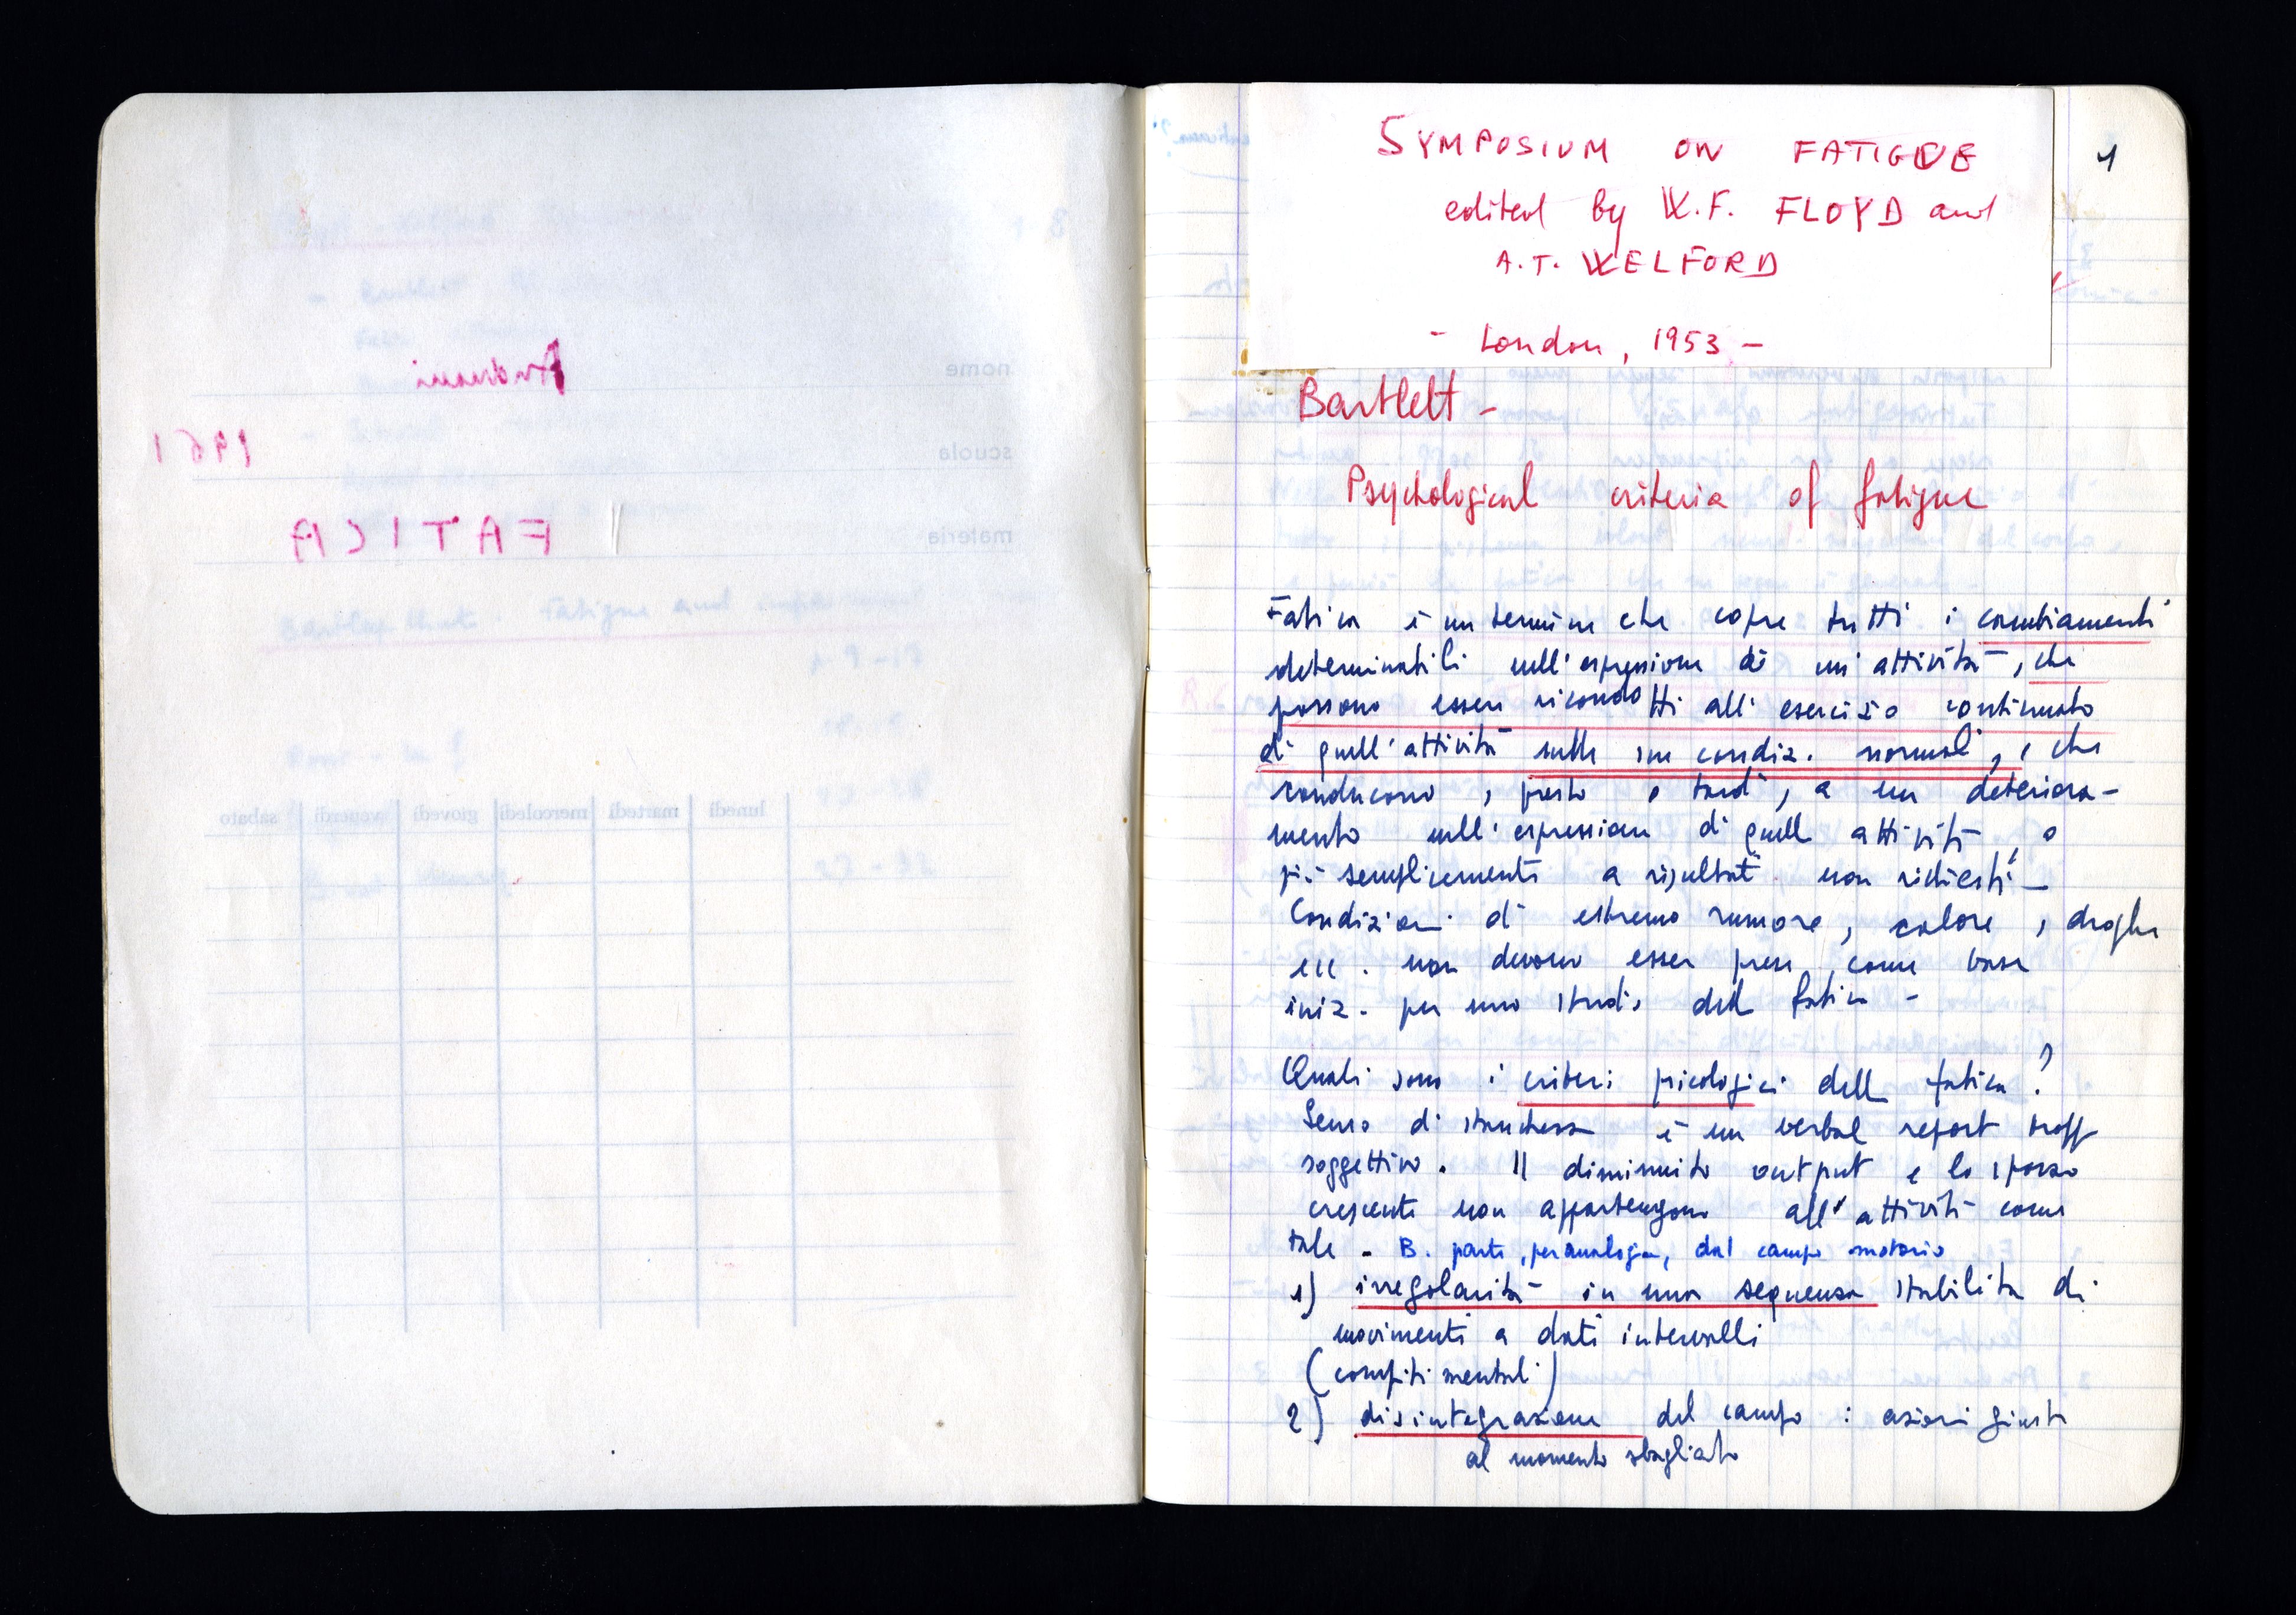 Arduini
1961
FATICA
nome
scuola
materia
Bartley Chute. Fatigue and impairment
lunedì martedì mercoledì giovedì venerdì sabato
1
SYMPOSIUM ON FATIGUE
edited by W.F. FLOYD and
A.T. WELFORD
- London, 1953 -
Bartlett -
Psychological criteria of fatigue
Fatica è un termine che copre tutti i cambiamenti
determinabili nell'espressione di un'attività, che
possono essere ricondotti all'esercizio continuato
di quell'attività nelle sue condiz. normali, e che
conducono, presto o tardi, a un deteriora-
mento nell'espressione di quell attività, o
più semplicemente a risultati non richiesti -
Condizioni di estremo rumore, calore, droghe
ecc. non devono esser prese come base
iniz. per uno studio della fatica -
Quali sono i criteri psicologici della fatica?
Senso di stanchezza è un verbal report tropp
soggettivo. Il diminuito output e lo sforzo
crescente non appartengono all'attività come
tale - B. parte, per analogia, dal campo motorio
1) irregolarità in una sequenza stabilita di
movimenti a dati intervalli
(compiti mentali)
2) disintegrazione del campo : azioni giuste
al momento sbagliato